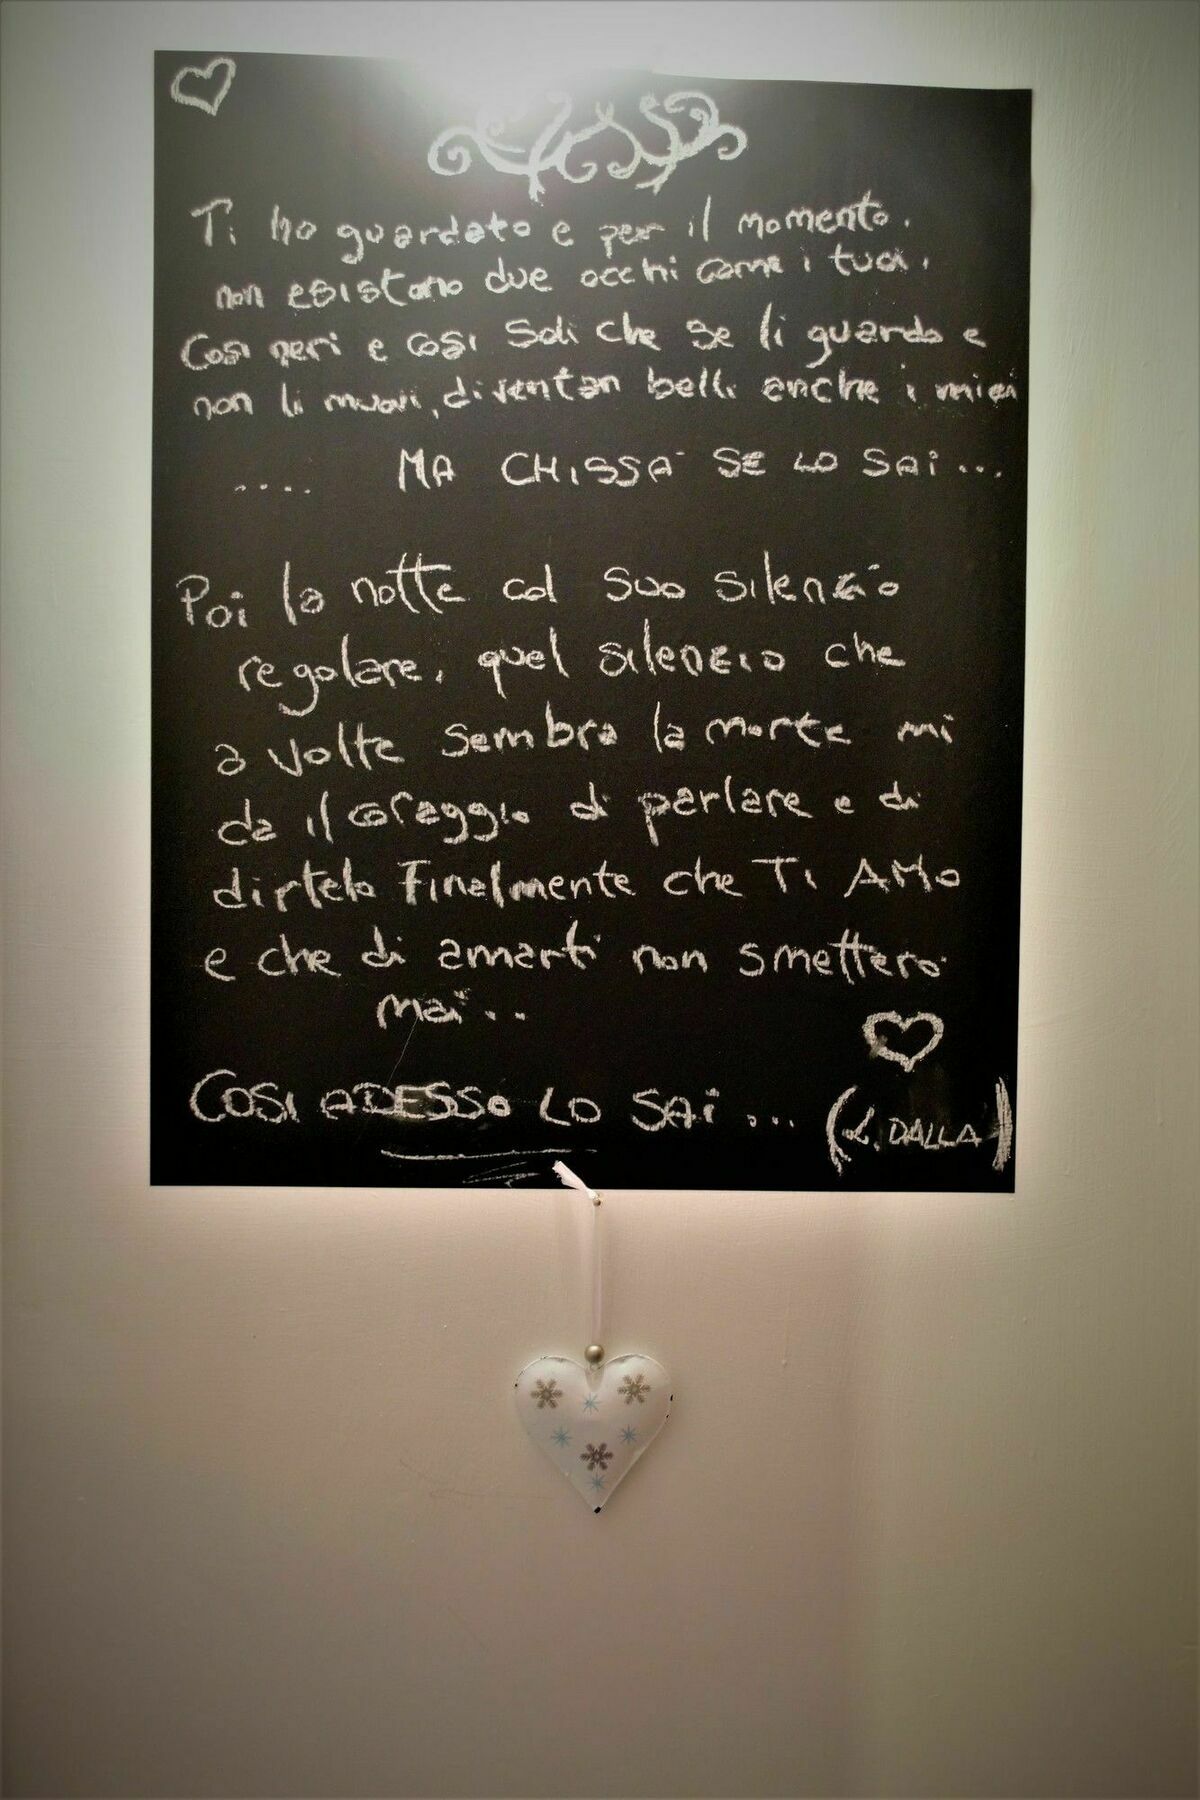 Ti ho guardato e per il momento.
non esistono due occhi come i tuoi.
Cosi neri e cosi soli che se li guardo e
non li muovi, diventan belli anche i miei
.... MA CHISSA' SE LO SAI...
Poi la notte col suo silenzio
regolare, quel silenzio che
a volte sembra la morte mi
da il coraggio di parlare e di
dirtelo finalmente che TI AMO
e che di amarti non smettero'
mai...
COSI ADESSO LO SAI ... (L. DALLA)